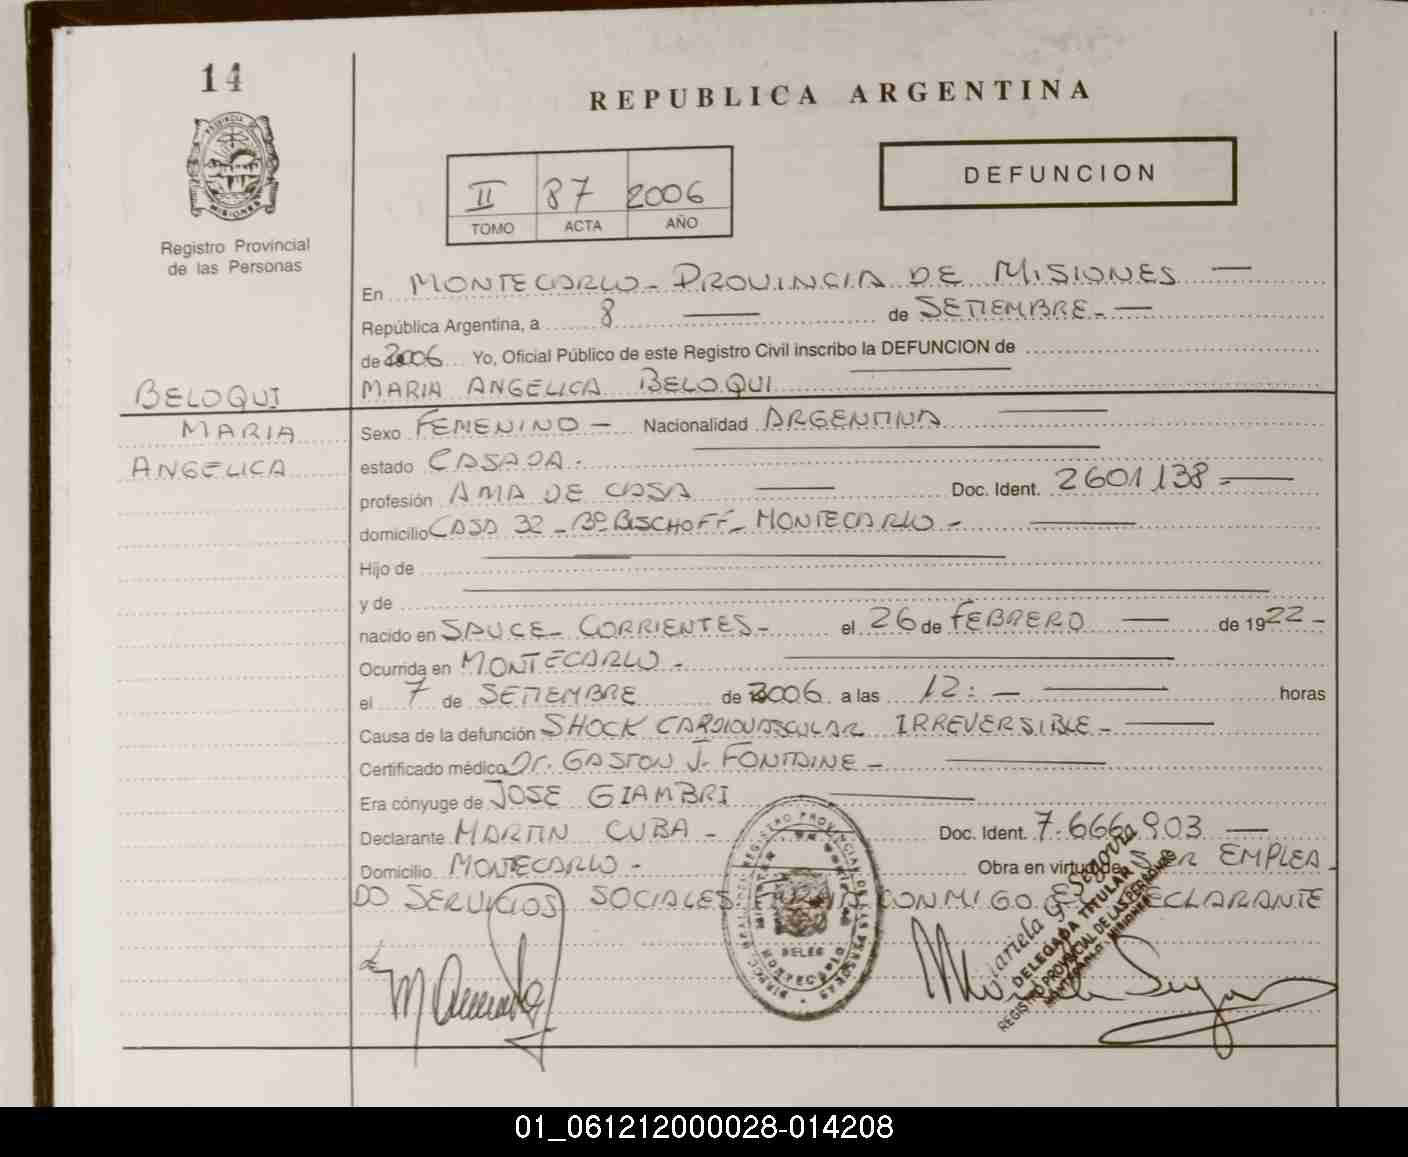 14
REPUBLICA ARGENTINA
PROVINCIA DE
MISIONES
Registro Provincial
de las Personas
DEFUNCION
II 87 2006
TOMO ACTA AÑO
En MONTECARLO - PROVINCIA DE MISIONES —
República Argentina, a 8 — de SETIEMBRE - —
de 2006 Yo, Oficial Público de este Registro Civil inscribo la DEFUNCION de
MARIA ANGELICA BELOQUI
BELOQUI
MARIA
ANGELICA
Sexo FEMENINO — Nacionalidad ARGENTINA —
estado CASADA.
profesión AMA DE CASA — Doc. Ident. 2601138 = —
domicilio CASA 32 - Bº BISCHOFF - MONTECARLO - —
Hijo de —
y de —
nacido en SAUCE - CORRIENTES - el 26 de FEBRERO — de 1922 -
Ocurrida en MONTECARLO - —
el 7 de SETIEMBRE de 2006 a las 12: — horas
Causa de la defunción SHOCK CARDIOVASCULAR IRREVERSIBLE - —
Certificado médico Dr. GASTON J. FONTAINE - —
Era cónyuge de JOSE GIAMBRI —
Declarante MARTIN CUBA - Doc. Ident. 7.666.903 —
Domicilio MONTECARLO - Obra en virtud de SER EMPLEA-
DO SERVICIOS SOCIALES FIRMA CONMIGO EL DECLARANTE
REGISTRO PROVINCIAL DE LAS PERSONAS
DELEG
MONTECARLO
Mariela G. Segovia
DELEGADA TITULAR
REGISTRO PROVINCIAL DE LAS PERSONAS
MONTECARLO - MISIONES
01_061212000028-014208